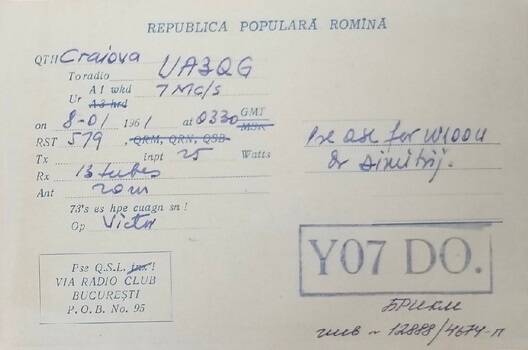 REPUBLICA POPULARĂ ROMÎNĂ
QTH Craiova
To radio UA3QG
Ur A1 wkd 7 Mc/s
A3 hrd
on 8-01 1961 at 0330 GMT
MSK
RST 579, QRM, QRN, QSB
Tx inpt 25 Watts
Rx 13 tubes
Ant 20m
73's es hpe cuagn sn!
Op Victor
for
dr Dimitrij.
Pse Q.S.L. tnx!
VIA RADIO CLUB
BUCUREȘTI
P.O.B. No. 95
YO7 DO.
12888/4674-п